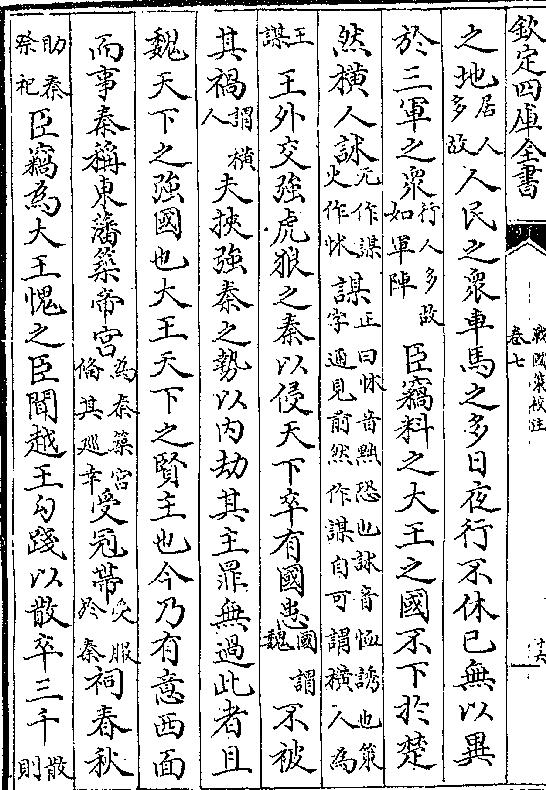 欽定四庫全書
戰國策校注
卷七
十六
之地居人多故人民之衆車馬之多日夜行不休已無以異
於三軍之衆行人多故如軍陣臣竊料之大王之國不下於楚
然横人訹元作謀史作怵謀正曰怵音黜恐也訹音恤誘也策字通見前然作謀自可謂横人為
王謀王外交強虎狼之秦以侵天下卒有國患國謂魏不被
其禍謂横人夫挾強秦之勢以内劫其主罪無過此者且
魏天下之強國也大王天下之賢主也今乃有意西面
而事秦稱東藩築帝宫為秦築宫備其廵幸受冠帶受服於秦祠春秋
助秦祭祀臣竊為大王愧之臣聞越王勾踐以散卒三千散則